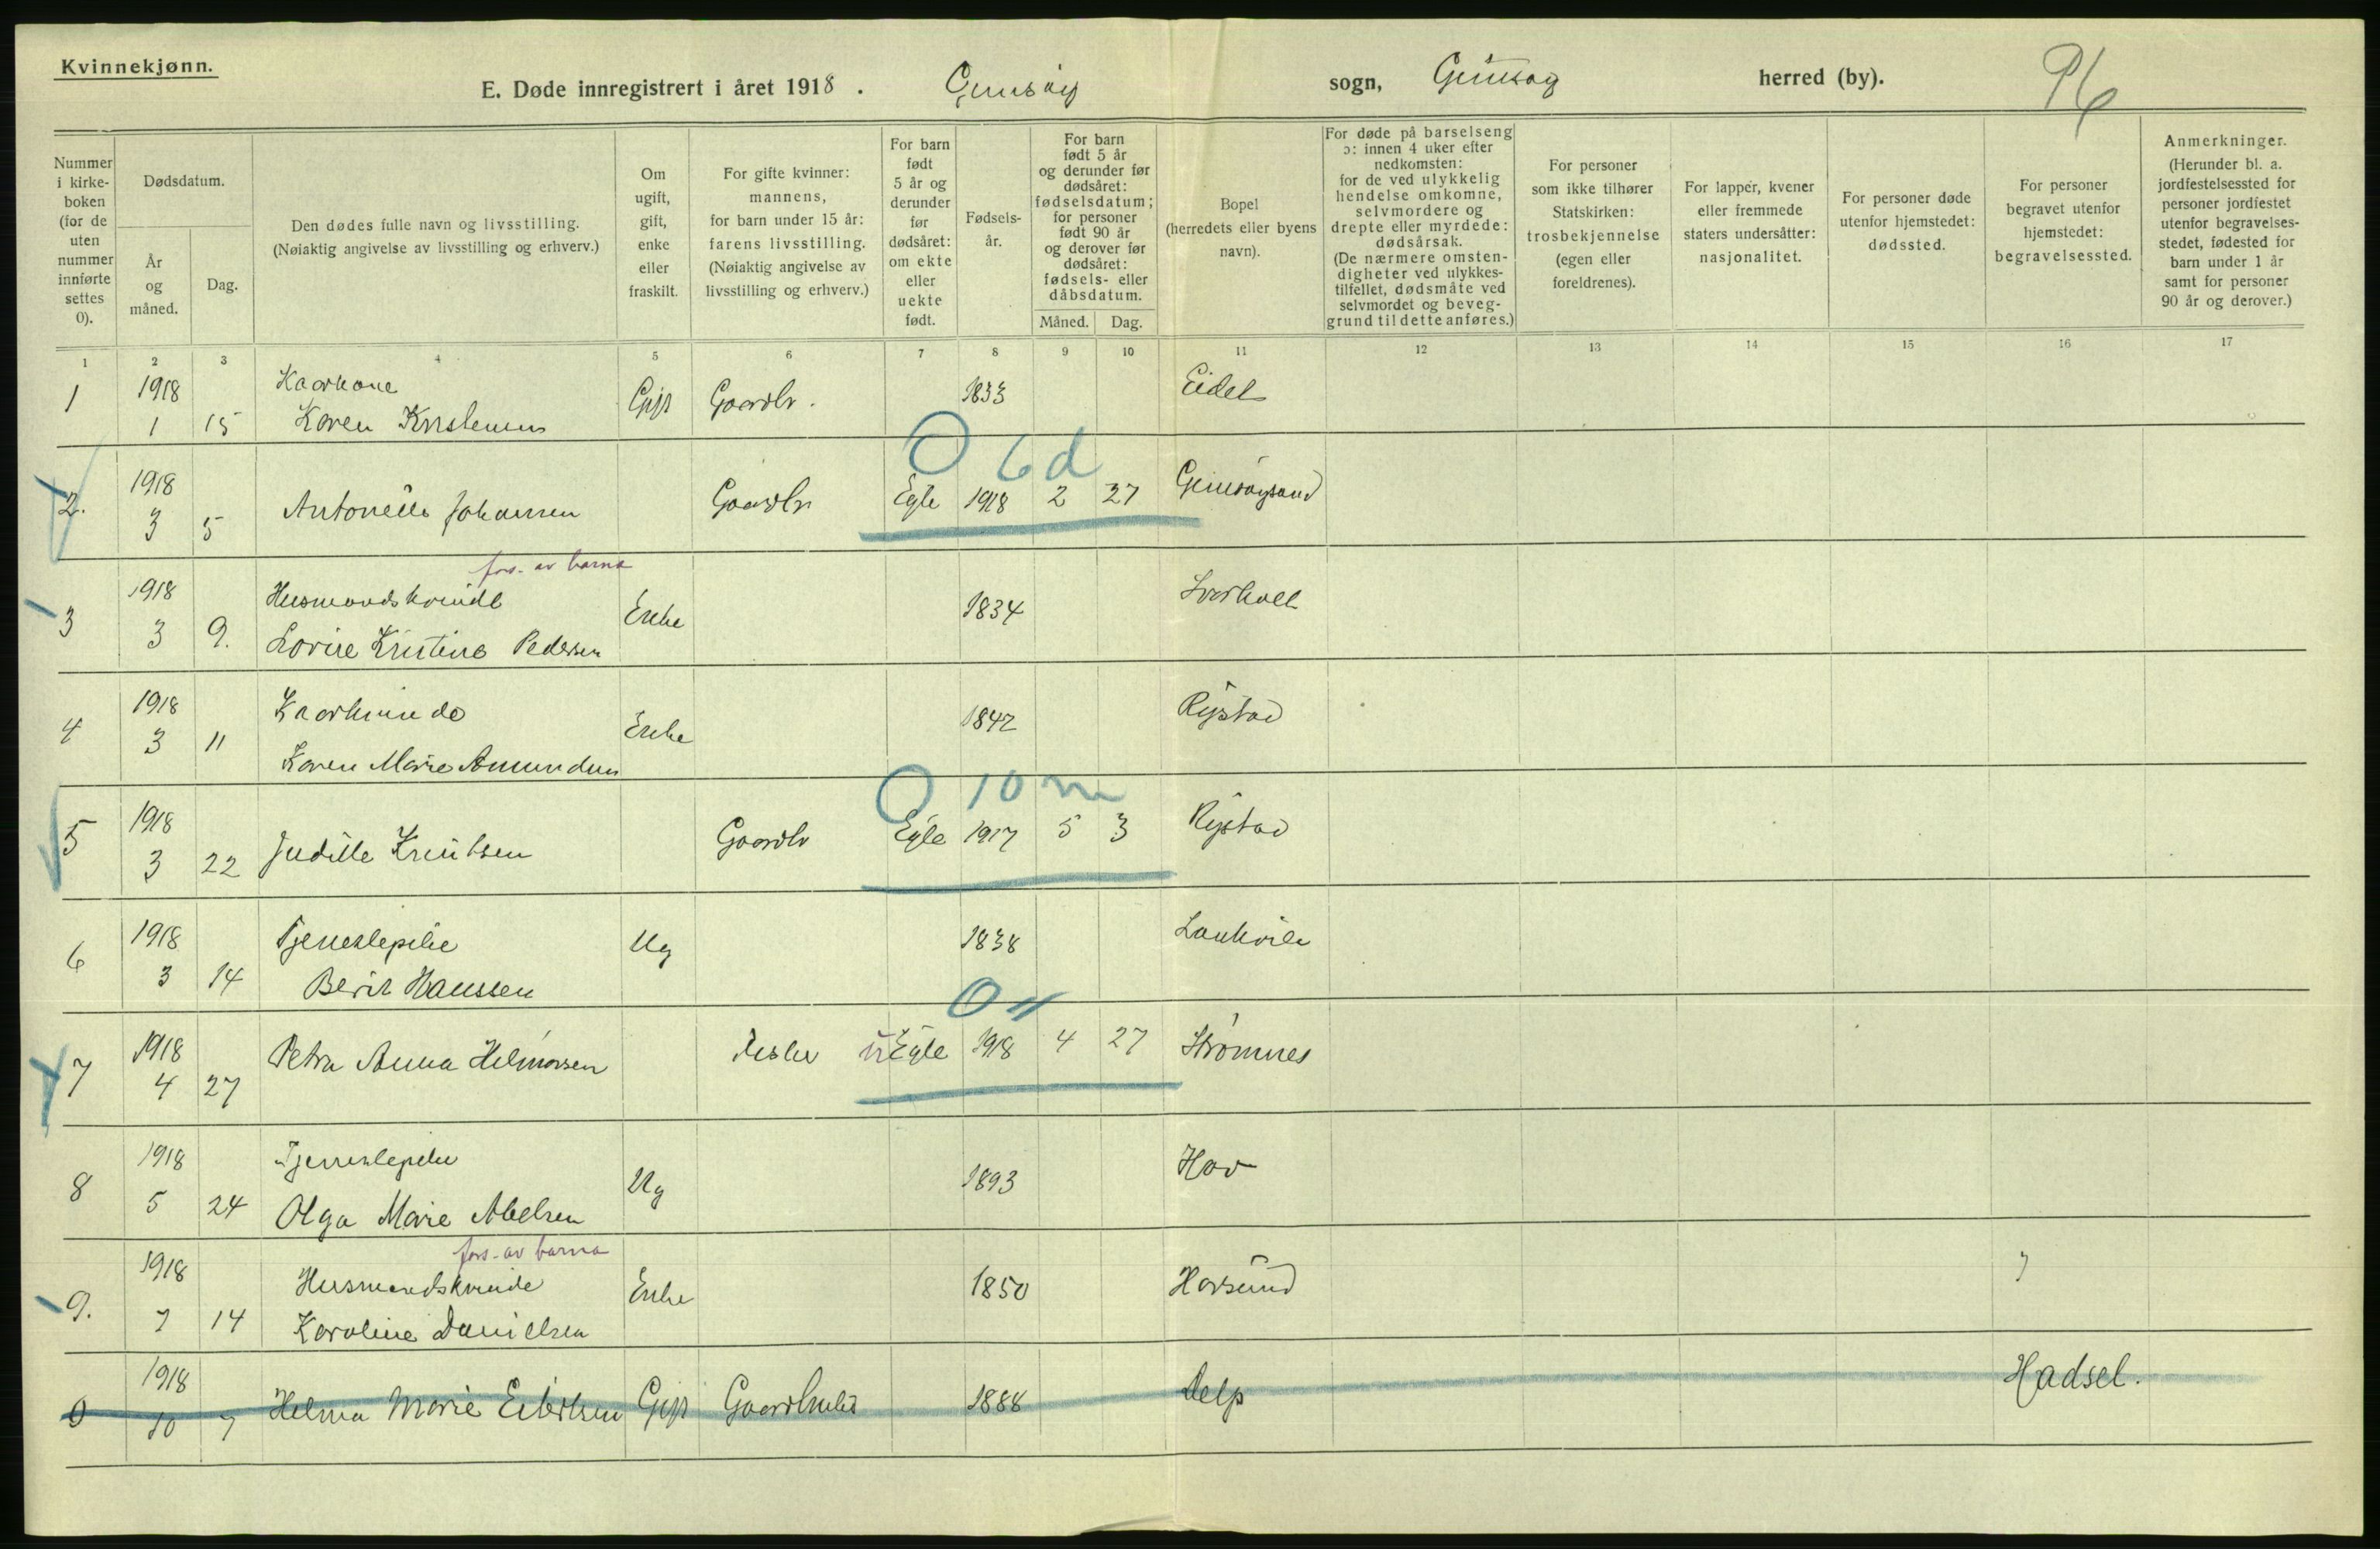 Kvinnekjønn.
E. Døde innregistrert i året 1918. Gimsøy sogn, Gimsøy herred (by).
Nummer i kirke-boken (for de uten nummer innførte settes 0).
Dødsdatum.
År og måned.
Dag.
Den dødes fulle navn og livsstilling.
(Nøiaktig angivelse av livsstilling og erhverv.)
Om ugift, gift, enke eller fraskilt.
For gifte kvinner: mannens, for barn under 15 år: farens livsstilling. (Nøiaktig angivelse av livsstilling og erhverv.)
For barn født 5 år og derunder før dødsåret: om ekte eller uekte født.
Fødsels-år.
For barn født 5 år og derunder før dødsåret: fødselsdatum; for personer født 90 år og derover før dødsåret: fødsels- eller dåbsdatum.
Måned. Dag.
Bopel (herredets eller byens navn).
For døde på barselseng ɔ: innen 4 uker efter nedkomsten: for de ved ulykkelig hendelse omkomne, selvmordere og drepte eller myrdede: dødsårsak. (De nærmere omsten-digheter ved ulykkes-tilfellet, dødsmåte ved selvmordet og beveg-grund til dette anføres.)
For personer som ikke tilhører Statskirken: trosbekjennelse (egen eller foreldrenes).
For lapper, kvener eller fremmede staters undersåtter: nasjonalitet.
For personer døde utenfor hjemstedet: dødssted.
For personer begravet utenfor hjemstedet: begravelsessted.
Anmerkninger. (Herunder bl. a. jordfestelsessted for personer jordfestet utenfor begravelses-stedet, fødested for barn under 1 år samt for personer 90 år og derover.)
1 2 3 4 5 6 7 8 9 10 11 12 13 14 15 16 17
1 1918 Kaarkone Gift Gaardbr. 1833 Eidet
1 15 Karen Kristensen
O 6 d
2. 1918 Gaardbr Egte 1918 2 27 Gimsøysand
3 5 Antonette Johansen
fors. av barna
3 1918 Husmandskvinde Enke 1834
3 9. Lovise Kristine Pedersen
4 1918 Kaarkvinde Enke 1842 Rystad
3 11 Karen Marie Amundsen
O 10 m
5 1918 Gaardbr Egte 1917 5 3 Rystad
3 22 Juditte Knutsen
6 1918 Tjenestepike Ug 1838 Laukvik
3 14 Berit Hanssen
O
7 1918 Petra Anna Helmersen Fisker Egte 1918 4 27 Strømnes
4 27
8 1918 Tjenestepike Ug 1893 Hov
5 24 Olga Marie Abelsen
fors. av barna
9. 1918 Husmandskvinde Enke 1850 Hovsund
7 14 Karoline Danielsen
0 1918 Helma Marie Eilertsen Gift 1888 Delp Hadsel.
10 7